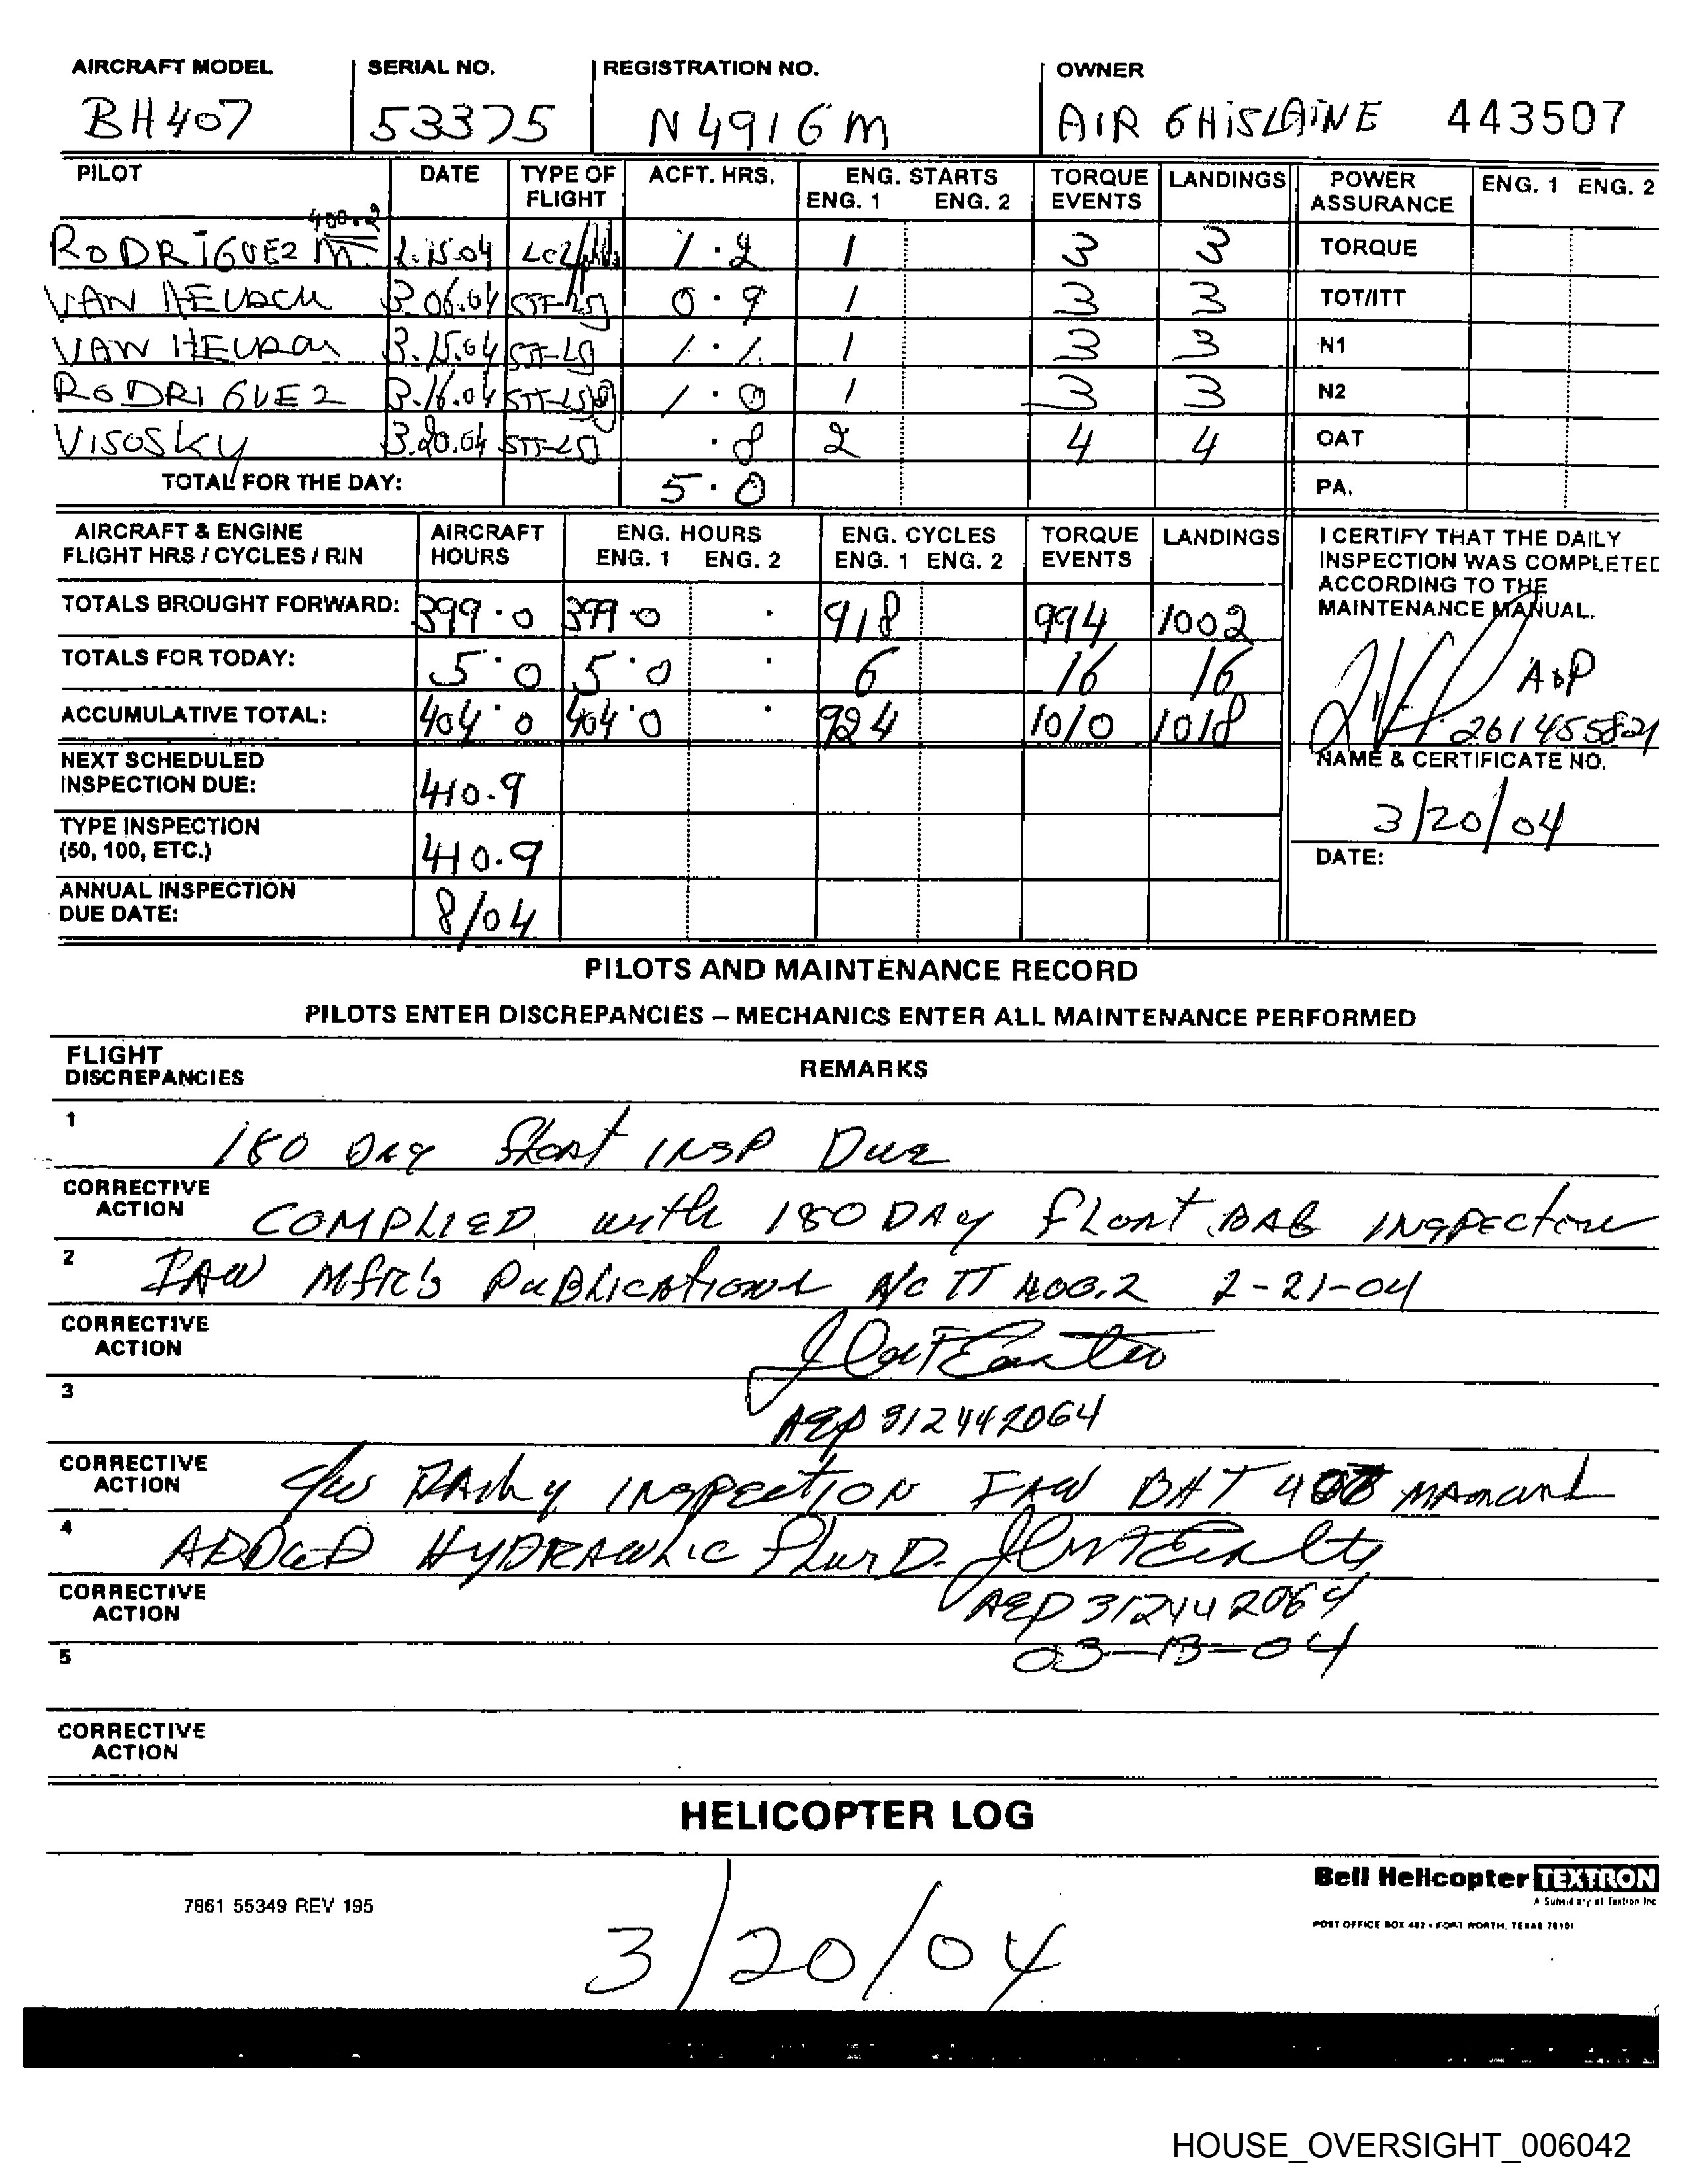 AIRCRAFT MODEL SERIAL NO. REGISTRATION NO. OWNER
BH407 53375 N4916M AIR GHISLAINE 443507
PILOT DATE TYPE OF FLIGHT ACFT. HRS. ENG. STARTS ENG. 1 ENG. 2 TORQUE EVENTS LANDINGS POWER ASSURANCE ENG. 1 ENG. 2
400.2
RODRIGUEZ M. 2.15.04 1.2 1 3 3 TORQUE
VAN 3.06.04 0.9 1 3 3 TOT/ITT
VAN 3.15.04 1.1 1 3 3 N1
RODRIGUEZ 3.16.04 1.0 1 3 3 N2
VISOSKY 3.20.04 .8 2 4 4 OAT
TOTAL FOR THE DAY: 5.0 PA.
AIRCRAFT & ENGINE FLIGHT HRS / CYCLES / RIN AIRCRAFT HOURS ENG. HOURS ENG. 1 ENG. 2 ENG. CYCLES ENG. 1 ENG. 2 TORQUE EVENTS LANDINGS
I CERTIFY THAT THE DAILY
INSPECTION WAS COMPLETED
ACCORDING TO THE
MAINTENANCE MANUAL.
TOTALS BROUGHT FORWARD: 399.0 399.0 . 918 994 1002
TOTALS FOR TODAY: 5.0 5.0 . 6 16 16
A&P
ACCUMULATIVE TOTAL: 404.0 404.0 . 924 1010 1018
261455821
NAME & CERTIFICATE NO.
NEXT SCHEDULED
INSPECTION DUE: 410.9
3/20/04
TYPE INSPECTION
(50, 100, ETC.) 410.9
DATE:
ANNUAL INSPECTION
DUE DATE: 8/04
PILOTS AND MAINTENANCE RECORD
PILOTS ENTER DISCREPANCIES – MECHANICS ENTER ALL MAINTENANCE PERFORMED
FLIGHT
DISCREPANCIES REMARKS
1
180 DAY Float INSP Due
CORRECTIVE
ACTION COMPLIED with 180 DAY FLOAT BAG INSPECTION
2 IAW Mfr's PUBLICATIONS A/C TT 400.2 2-21-04
CORRECTIVE
ACTION
3
A&P 312442064
CORRECTIVE
ACTION C/W DAILY INSPECTION IAW BHT 407 MANUAL
4 ADDED HYDRAULIC FLUID.
CORRECTIVE
ACTION A&P 312442064
5 03-13-04
CORRECTIVE
ACTION
HELICOPTER LOG
Bell Helicopter TEXTRON
A Subsidiary of Textron Inc
7861 55349 REV 195
POST OFFICE BOX 482 • FORT WORTH, TEXAS 76101
3/20/04
HOUSE_OVERSIGHT_006042